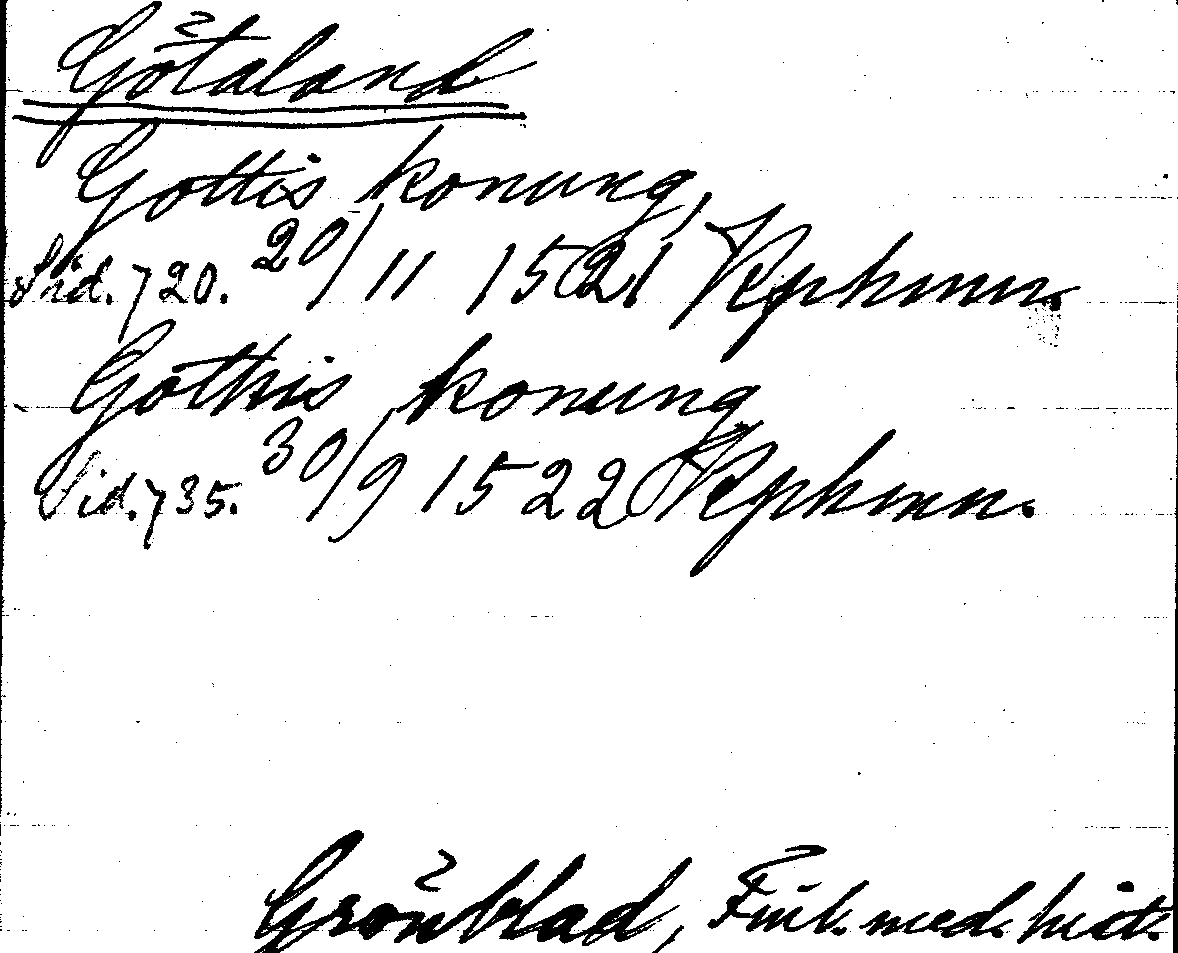 Götaland
Gottis konung,
Sid. 720. 20/11 1521 Kphmn.
Göthis konung
Sid. 735. 30/9 1522 Kphmn.
Grönblad, Finl. med. hist.